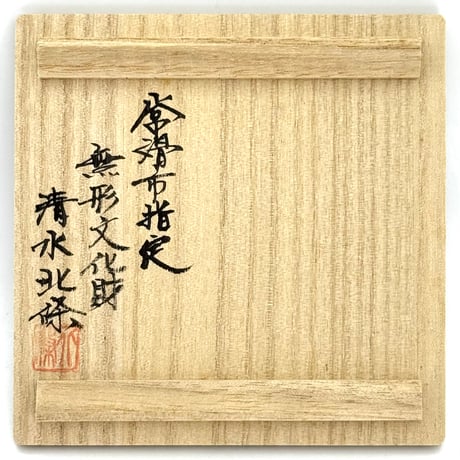 常滑市指定
無形文化財
清水北條